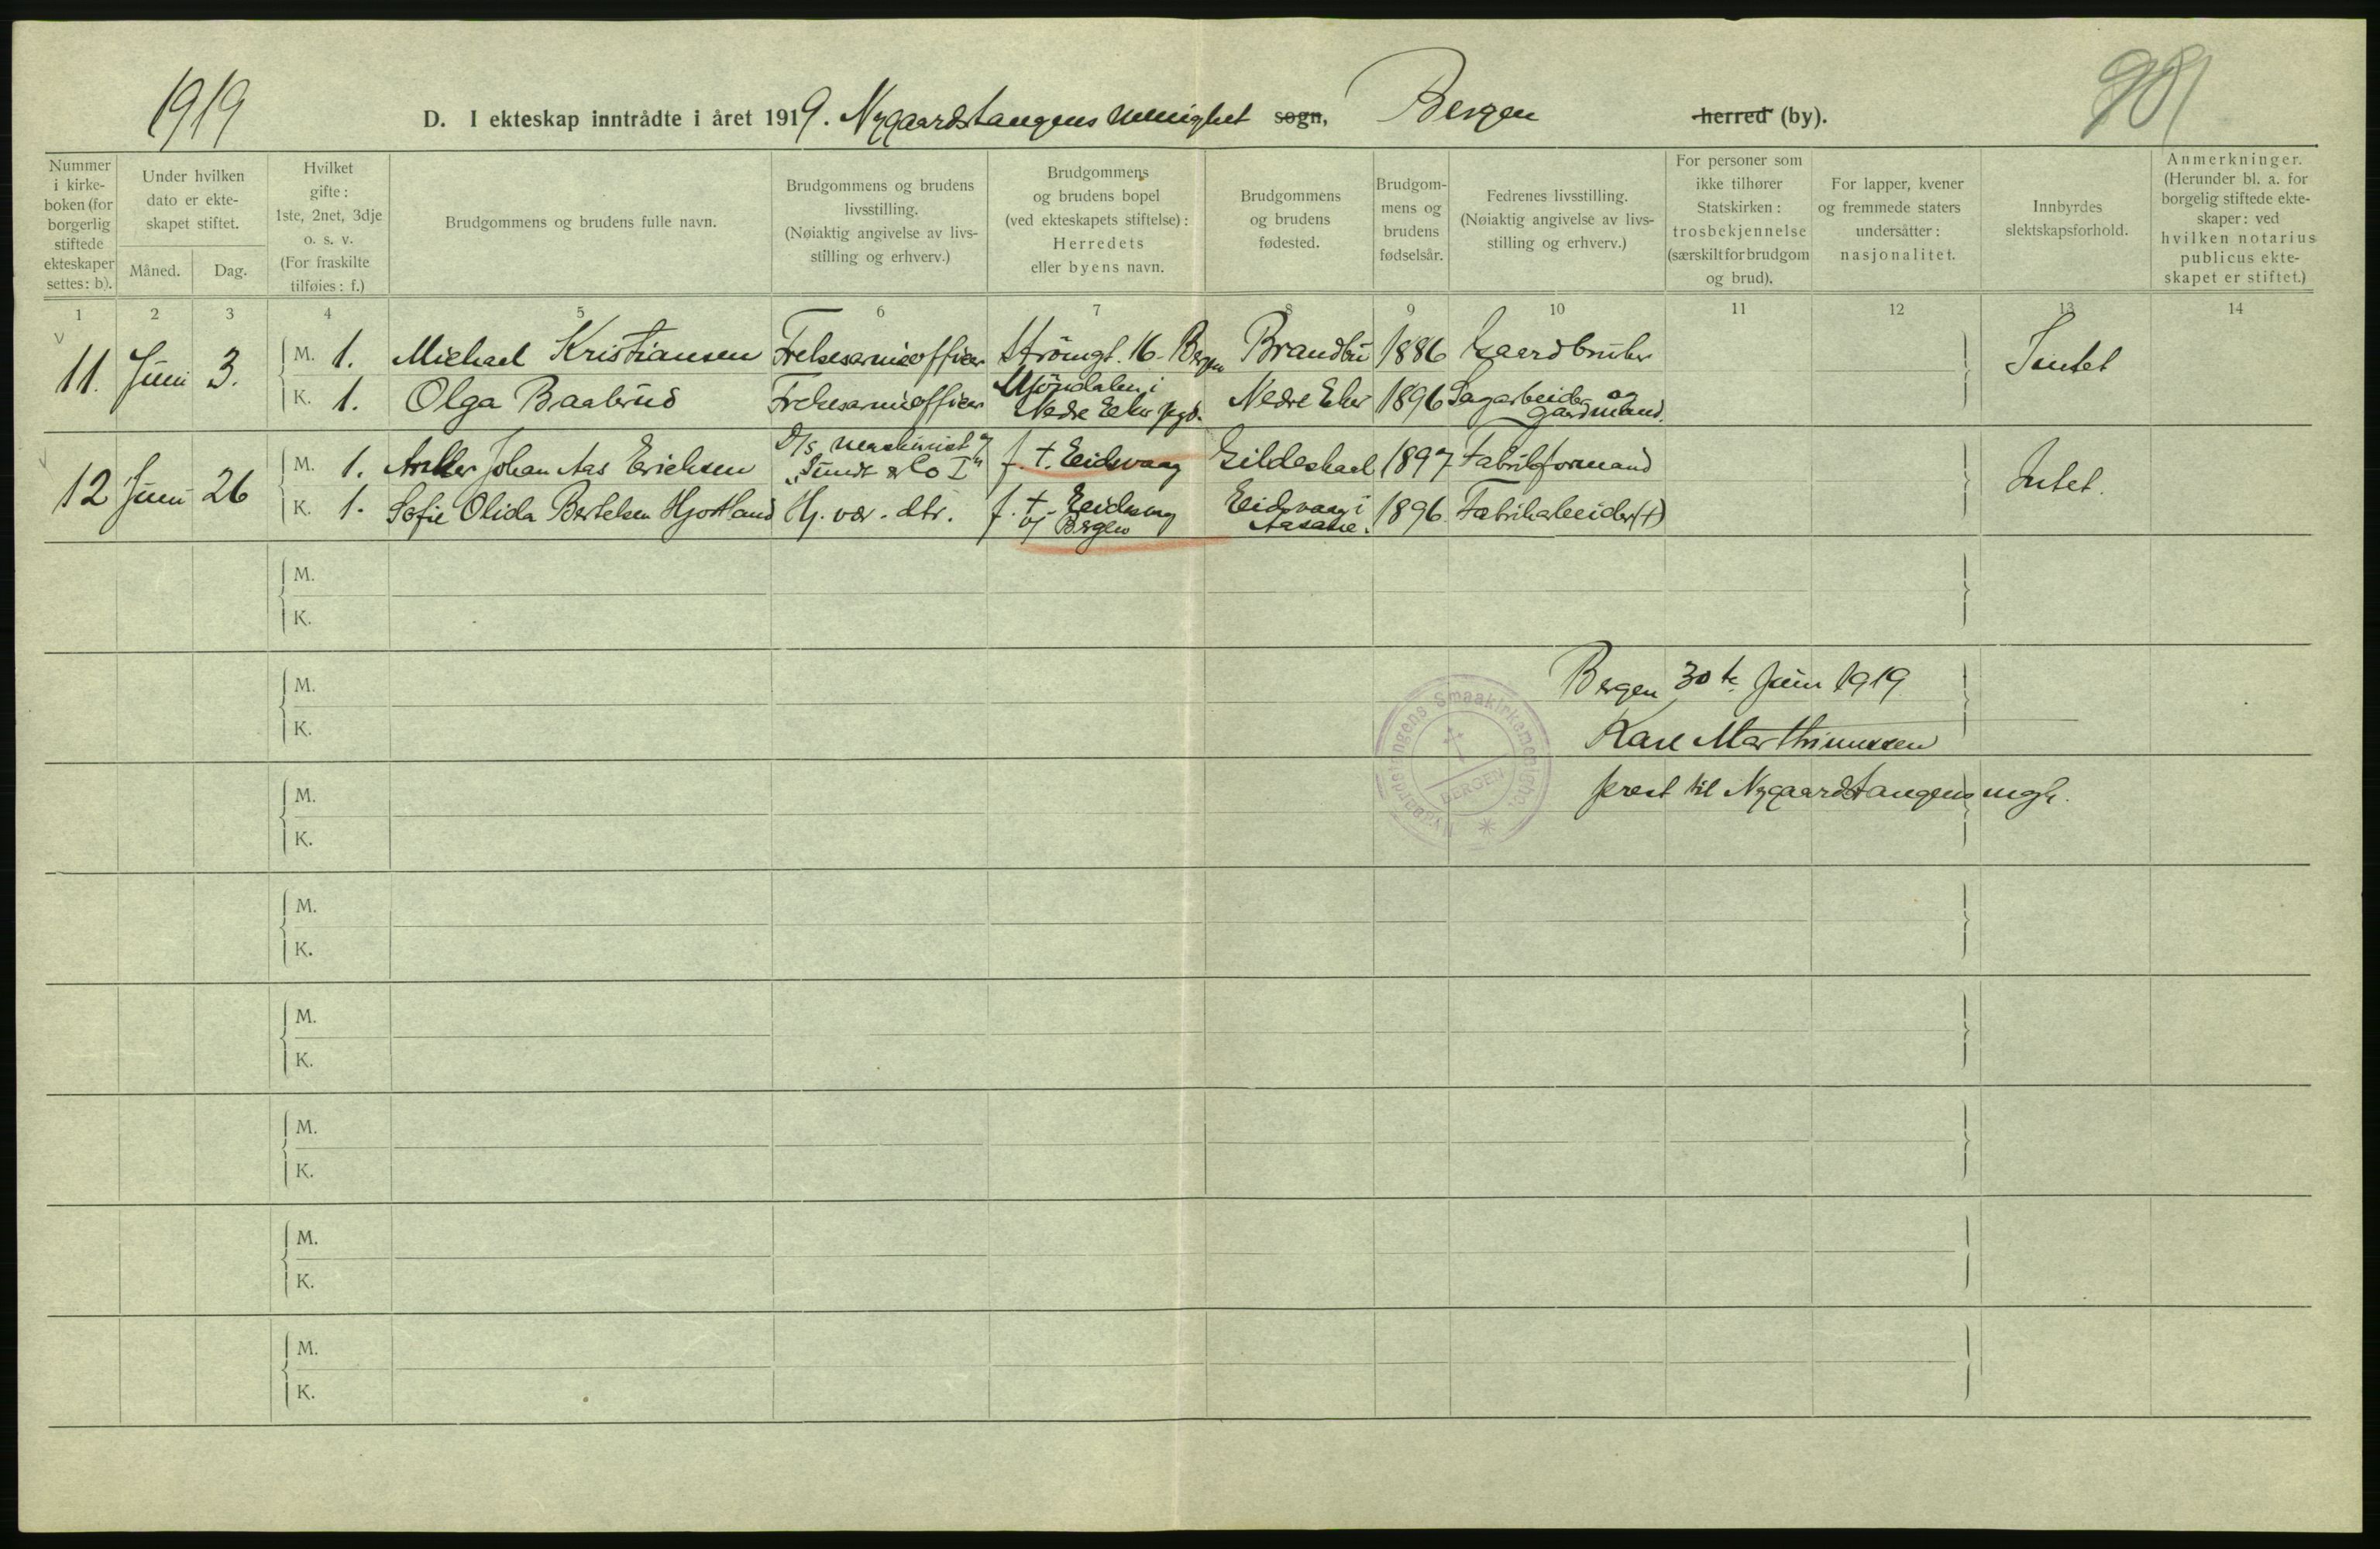 1919
D. I ekteskap inntrådte i året 1919. Nygaardstangens menighet sogn, Bergen herred (by).
981
Nummer
i kirke-
boken (for
borgerlig
stiftede
ekteskaper
settes: b).
Under hvilken
dato er ekte-
skapet stiftet.
Måned.
Dag.
Hvilket
gifte:
1ste, 2net, 3dje
o. s. v.
(For fraskilte
tilføies: f.)
Brudgommens og brudens fulle navn.
Brudgommens og brudens
livsstilling.
(Nøiaktig angivelse av livs-
stilling og erhverv.)
Brudgommens
og brudens bopel
(ved ekteskapets stiftelse):
Herredets
eller byens navn.
Brudgommens
og brudens
fødested.
Brudgom-
mens og
brudens
fødselsår.
Fedrenes livsstilling.
(Nøiaktig angivelse av livs-
stilling og erhverv.)
For personer som
ikke tilhører
Statskirken:
trosbekjennelse
(særskilt for brudgom
og brud).
For lapper, kvener
og fremmede staters
undersåtter:
nasjonalitet.
Innbyrdes
slektskapsforhold.
Anmerkninger.
(Herunder bl. a. for
borgelig stiftede ekte-
skaper: ved
hvilken notarius
publicus ekte-
skapet er stiftet.)
1 2 3 4 5 6 7 8 9 10 11 12 13 14
11. Juni 3. M. 1. Michael Kristiansen Frelsesarmeofficer Strömgt. 16 - Bergen Brandbu 1886 Gaardbruker Intet
K. 1. Olga Baabrud Frelsesarmeofficer Mjöndalen i
Nedre Eker pgd. Nedre Eker 1896 Sagarbeider og
gaardmand.
12 Juni 26 M. 1. Johan Aas Erichsen D/s maskinist
"Sundt & Co I" f. t. Eidsvaag Gildeskaal 1897 Fabrikformand Intet.
K. 1. Sofie Olida Bertelsen Hjortland Hj. vær. dtr. f. t. Eidsvaag
Bergen Eidsvaag i
Aasane. 1896 Fabrikarbeider (+)
M.
K.
M.
K.
Bergen 30te Juni 1919
Karl Marthinussen
prest til Nygaardstangens mgh.
Nygaardstangens Smaakirkemenighet
BERGEN
M.
K.
M.
K.
M.
K.
M.
K.
M.
K.
M.
K.